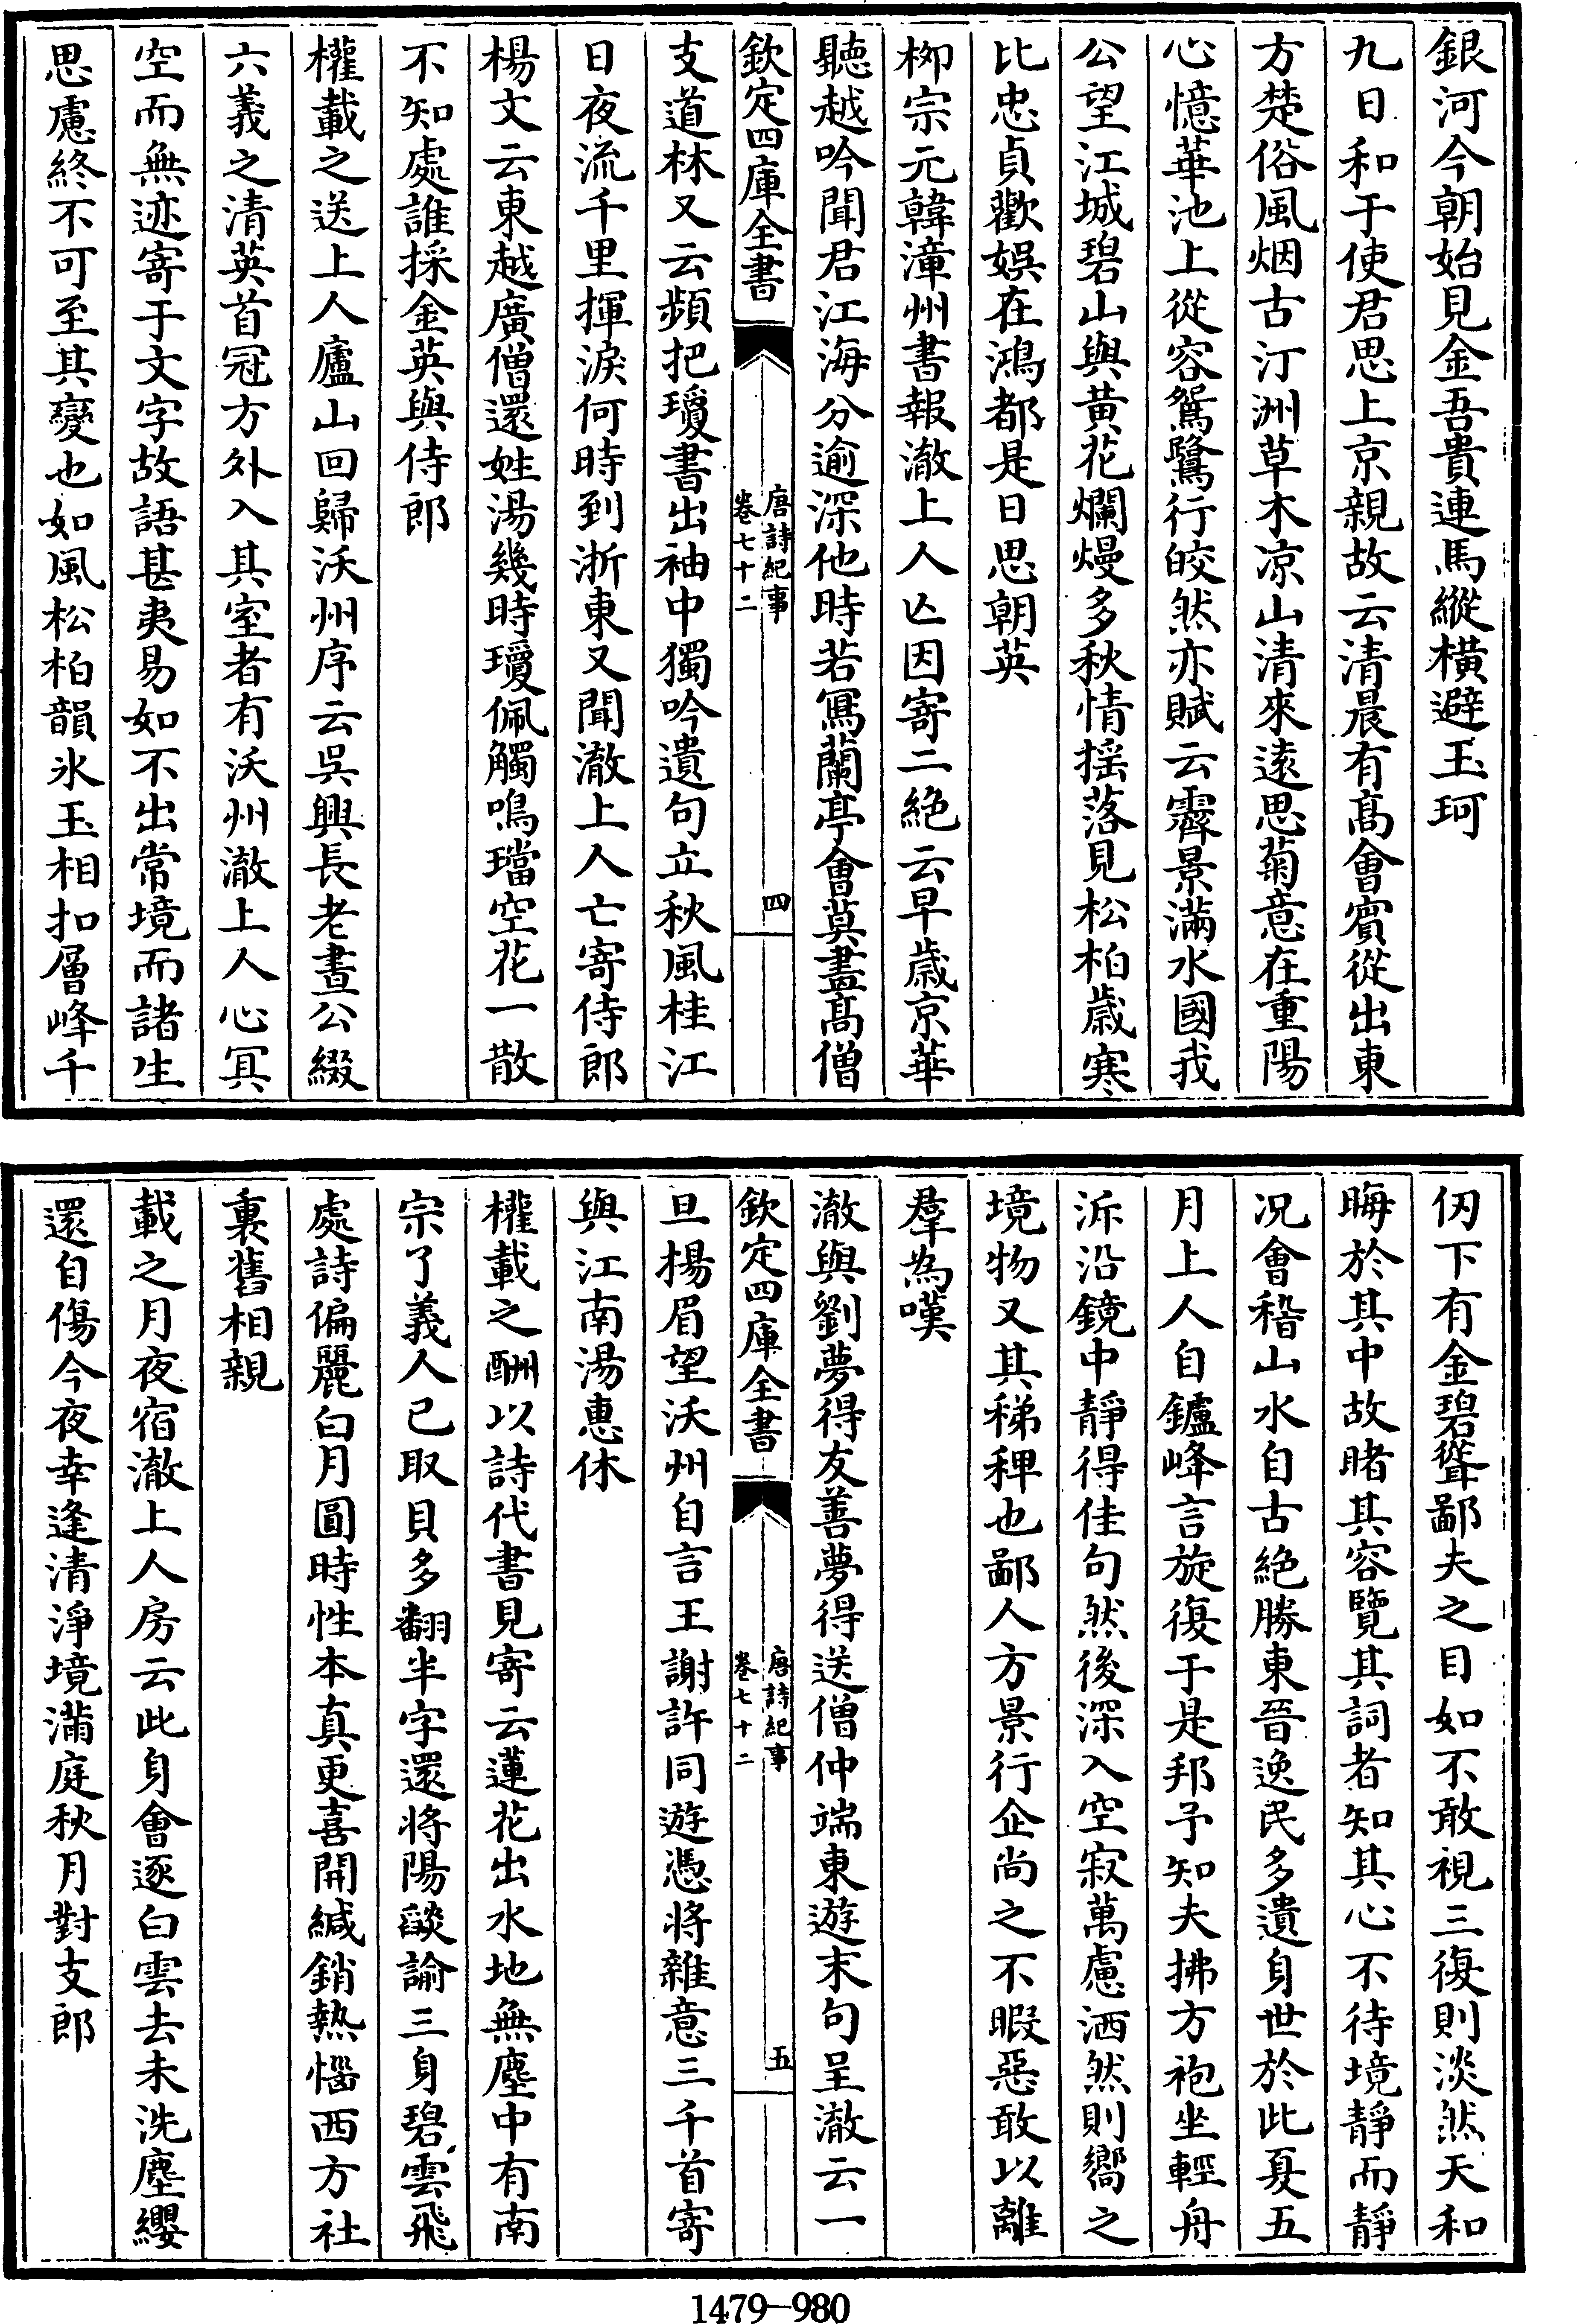 銀河今朝始見金吾貴連馬縱橫避玉珂
九日和于使君思上京親故云清晨有髙㑹賓從出東
方楚俗風烟古汀洲草木凉山清來逺思菊意在重陽
心憶華池上從容鴛鷺行皎然亦賦云霽景滿水國我
公望江城碧山與黄花爛熳多秋情摇落見松柏歳寒
比忠貞歡娯在鴻都是日思朝英
栁宗元韓漳州書報澈上人亾因寄二絶云早歳京華
聽越吟聞君江海分逾深他時若冩蘭亭㑹莫盡髙僧
欽定四庫全書
唐詩紀事
卷七十二
四
支道林又云頻把瓊書出袖中獨吟遺句立秋風桂江
日夜流千里揮淚何時到浙東又聞澈上人亡寄侍郎
楊文云東越廣僧還姓湯幾時瓊佩觸鳴璫空花一散
不知處誰採金英與侍郎
權載之送上人廬山回歸沃州序云吳興長老晝公綴
六義之清英首冠方外入其室者有沃州澈上人心冥
空而無迹寄于文字故語甚夷易如不出常境而諸生
思慮終不可至其變也如風松柏韻氷玉相扣層峰千
仭下有金碧聳鄙夫之目如不敢視三復則淡然天和
晦於其中故睹其容覽其詞者知其心不待境靜而靜
况㑹稽山水自古絶勝東晉逸民多遺身世於此夏五
月上人自鑪峰言旋復于是邦予知夫拂方袍坐輕舟
泝沿鏡中靜得佳句然後深入空寂萬慮洒然則嚮之
境物又其稊稗也鄙人方景行企尚之不暇惡敢以離
羣為嘆
澈與劉夢得友善夢得送僧仲端東遊末句呈澈云一
欽定四庫全書
唐詩紀事
卷七十二
五
旦揚眉望沃州自言王謝許同遊憑将雜意三千首寄
與江南湯惠休
權載之酬以詩代書見寄云蓮花出水地無塵中有南
宗了義人已取貝多翻半字還将陽燄諭三身碧雲飛
處詩偏麗白月圓時性本真更喜開緘銷熱惱西方社
裏舊相親
載之月夜宿澈上人房云此身㑹逐白雲去未洗塵纓
還自傷今夜幸逢清淨境滿庭秋月對支郎
1479—980